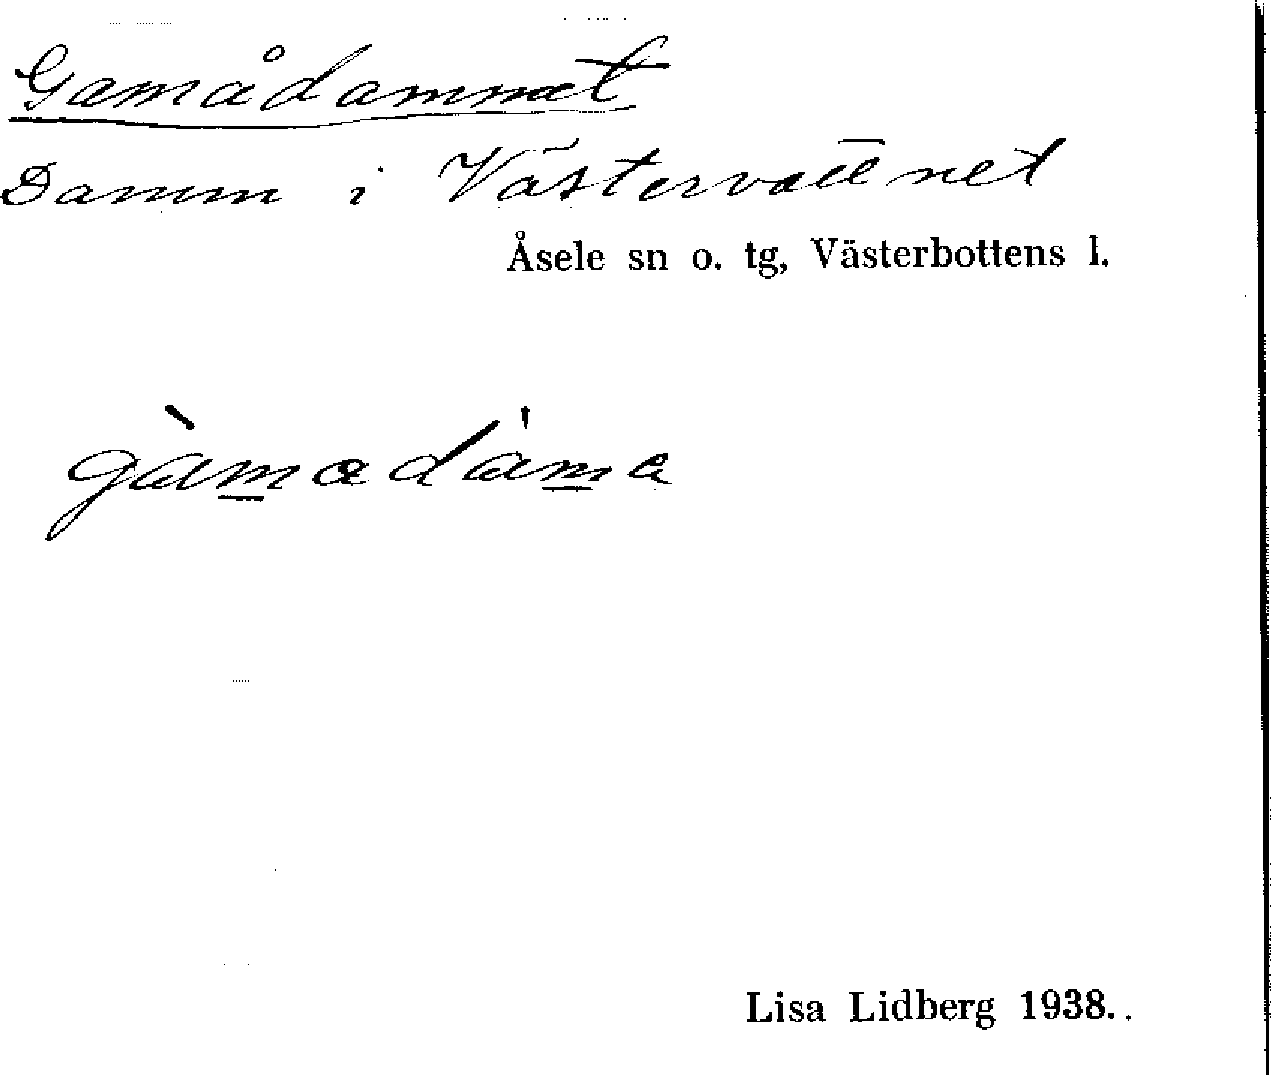 Gamådammet
Damm i Västervattnet
Åsele sn o. tg, Västerbottens l.
gàmadáma
Lisa Lidberg 1938..